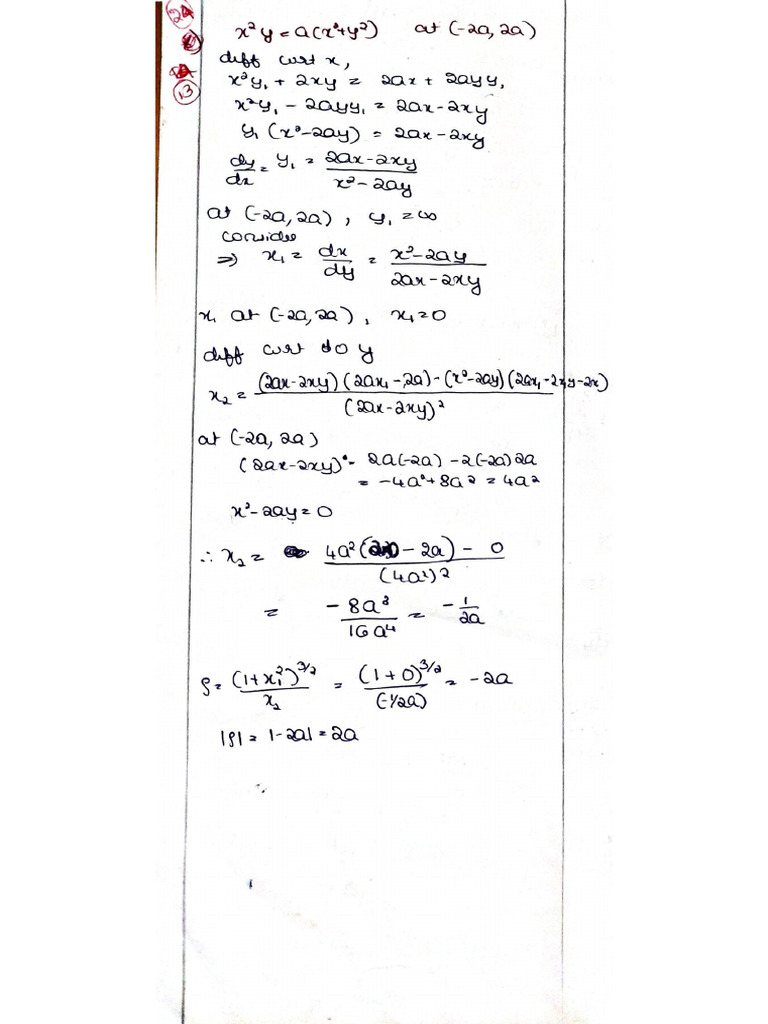 24
13
x²y = a(x²+y²) at (-2a, 2a)
diff wrt x,
x²y₁ + 2xy = 2ax + 2ayy₁
x²y₁ - 2ayy₁ = 2ax - 2xy
y₁ (x²-2ay) = 2ax - 2xy
dy/dx = y₁ = (2ax - 2xy)/(x² - 2ay)
at (-2a, 2a), y₁ = ∞
consider
⇒ x₁ = dx/dy = (x² - 2ay)/(2ax - 2xy)
x₁ at (-2a, 2a), x₁ = 0
diff wrt to y
x₂ = ((2ax - 2xy)(2xx₁ - 2a) - (x² - 2ay)(2ax₁ - 2x₁y - 2x))/(2ax - 2xy)²
at (-2a, 2a)
(2ax - 2xy) = 2a(-2a) - 2(-2a)2a
= -4a² + 8a² = 4a²
x² - 2ay = 0
∴ x₂ = (4a²( - 2a) - 0)/(4a²)²
= -8a³/16a⁴ = -1/2a
ρ = (1+x₁²)^3/2 / x₂ = (1+0)^3/2 / (-1/2a) = -2a
|ρ| = |-2a| = 2a